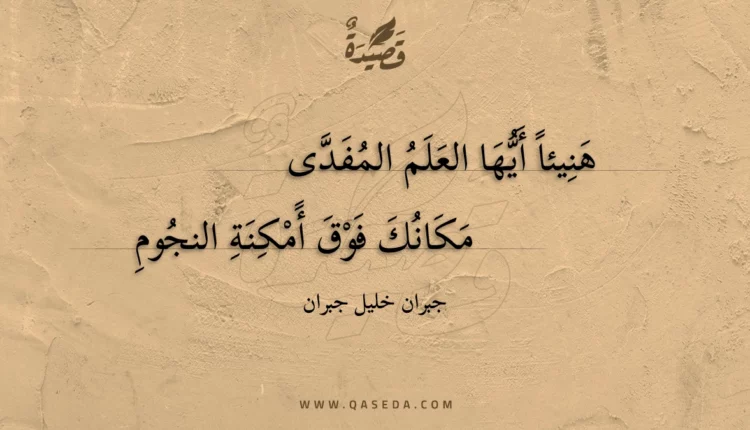 قَصِيدَةٌ
هَنِيئاً أَيُّهَا العَلَمُ المُفَدَّى
مَكَانُكَ فَوْقَ أَمْكِنَةِ النجُومِ
جبران خليل جبران
WWW.QASEDA.COM